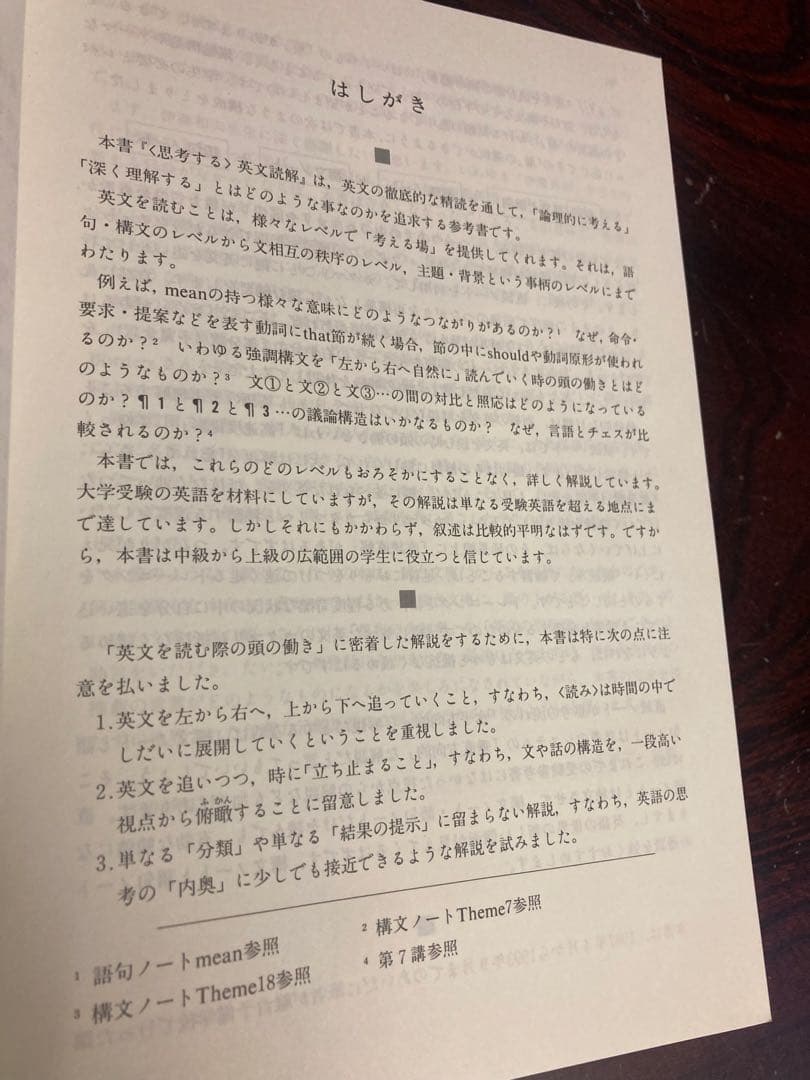 はしがき
本書『〈思考する〉英文読解』は，英文の徹底的な精読を通して，「論理的に考える」
「深く理解する」とはどのような事なのかを追求する参考書です。
英文を読むことは，様々なレベルで「考える場」を提供してくれます。それは，語
句・構文のレベルから文相互の秩序のレベル，主題・背景という事柄のレベルにまで
わたります。
例えば，meanの持つ様々な意味にどのようなつながりがあるのか？¹　なぜ，命令・
要求・提案などを表す動詞にthat節が続く場合，節の中にshouldや動詞原形が使われ
るのか？²　いわゆる強調構文を「左から右へ自然に」読んでいく時の頭の働きとはど
のようなものか？³　文①と文②と文③…の間の対比と照応はどのようになっている
のか？¶1と¶2と¶3…の議論構造はいかなるものか？　なぜ，言語とチェスが比
較されるのか？⁴
本書では，これらのどのレベルもおろそかにすることなく，詳しく解説しています。
大学受験の英語を材料にしていますが，その解説は単なる受験英語を超える地点にま
で達しています。しかしそれにもかかわらず，叙述は比較的平明なはずです。ですか
ら，本書は中級から上級の広範囲の学生に役立つと信じています。
「英文を読む際の頭の働き」に密着した解説をするために，本書は特に次の点に注
意を払いました。
1. 英文を左から右へ，上から下へ追っていくこと，すなわち，〈読み〉は時間の中で
しだいに展開していくということを重視しました。
2. 英文を追いつつ，時に「立ち止まること」，すなわち，文や話の構造を，一段高い
視点から俯瞰することに留意しました。
ふかん
3. 単なる「分類」や単なる「結果の提示」に留まらない解説，すなわち，英語の思
考の「内奥」に少しでも接近できるような解説を試みました。
¹ 語句ノートmean参照
² 構文ノートTheme7参照
³ 構文ノートTheme18参照
⁴ 第7講参照